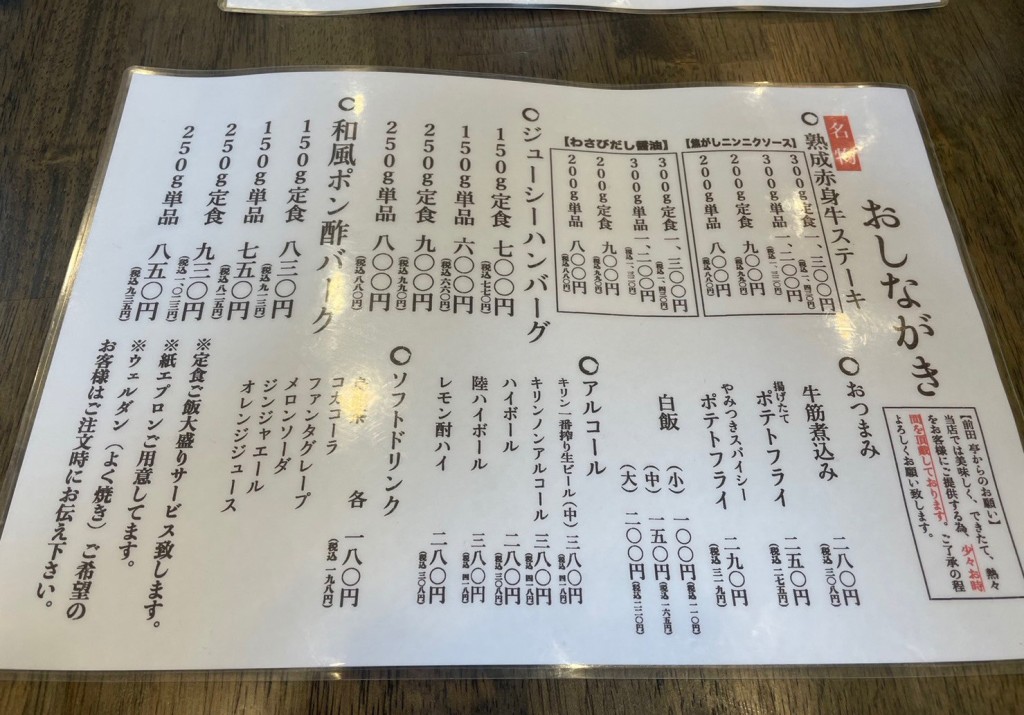 おしながき
【前田亭からのお願い】
当店では美味しく、できたて、熱々
をお客様にご提供する為、少々お時
間を頂戴しております。ご了承の程
よろしくお願い致します。
名物
○熟成赤身牛ステーキ
【焦がしニンニクソース】
300g定食 一、三〇〇円 (税込 一、四三〇円)
300g単品 一、二〇〇円 (税込 一、三二〇円)
200g定食 九〇〇円 (税込 九九〇円)
200g単品 八〇〇円 (税込 八八〇円)
【わさびだし醤油】
300g定食 一、三〇〇円 (税込 一、四三〇円)
300g単品 一、二〇〇円 (税込 一、三二〇円)
200g定食 九〇〇円 (税込 九九〇円)
200g単品 八〇〇円 (税込 八八〇円)
○ジューシーハンバーグ
150g定食 七〇〇円 (税込 七七〇円)
150g単品 六〇〇円 (税込 六六〇円)
250g定食 九〇〇円 (税込 九九〇円)
250g単品 八〇〇円 (税込 八八〇円)
○和風ポン酢バーグ
150g定食 八三〇円 (税込 九一三円)
150g単品 七五〇円 (税込 八二五円)
250g定食 九三〇円 (税込 一、〇二三円)
250g単品 八五〇円 (税込 九三五円)
○おつまみ
牛筋煮込み 二八〇円 (税込 三〇八円)
揚げたて
ポテトフライ 二五〇円 (税込 二七五円)
やみつきスパイシー
ポテトフライ 二九〇円 (税込 三一九円)
白飯 (小) 一〇〇円 (税込 一一〇円)
(中) 一五〇円 (税込 一六五円)
(大) 二〇〇円 (税込 二二〇円)
○アルコール
キリン一番搾り生ビール(中) 三八〇円 (税込 四一八円)
キリンノンアルコール 三八〇円 (税込 四一八円)
ハイボール 二八〇円 (税込 三〇八円)
陸ハイボール 三八〇円 (税込 四一八円)
レモン酎ハイ 二八〇円 (税込 三〇八円)
○ソフトドリンク
各 一八〇円 (税込 一九八円)
コカコーラ
ファンタグレープ
メロンソーダ
ジンジャエール
オレンジジュース
※定食ご飯大盛りサービス致します。
※紙エプロンご用意してます。
※ウェルダン(よく焼き)ご希望の
お客様はご注文時にお伝え下さい。